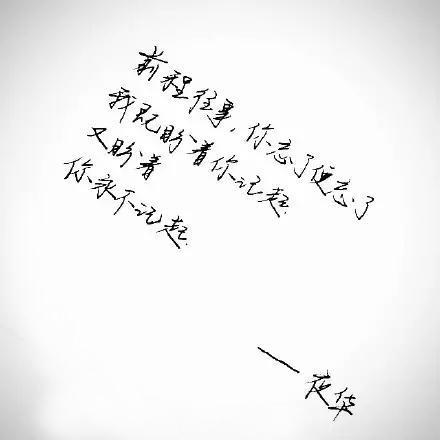 前程往事，你忘了便忘了
我既盼着你记起
又盼着
你永不记起
——夜华